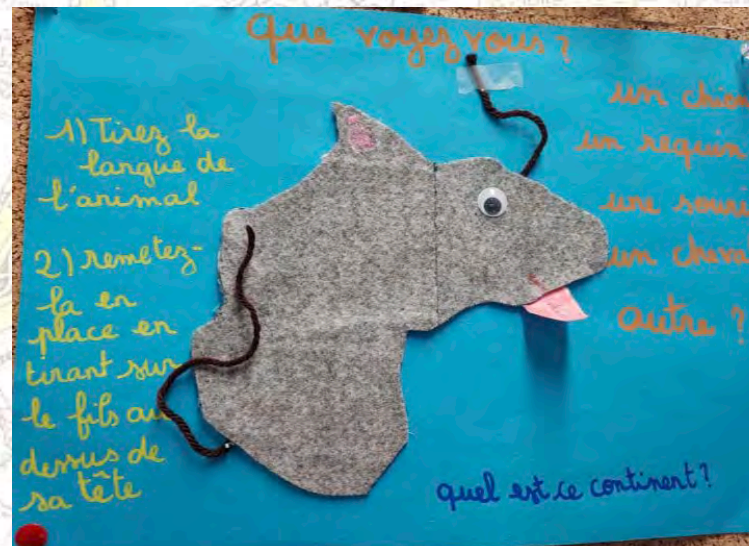 Que voyez vous ?
1) Tirez la
langue de
l'animal
2) remetez-
la en
place en
tirant sur
le fils au
dessus de
sa tête
un chien
un requin
une souri
un cheva
autre ?
quel est ce continent ?